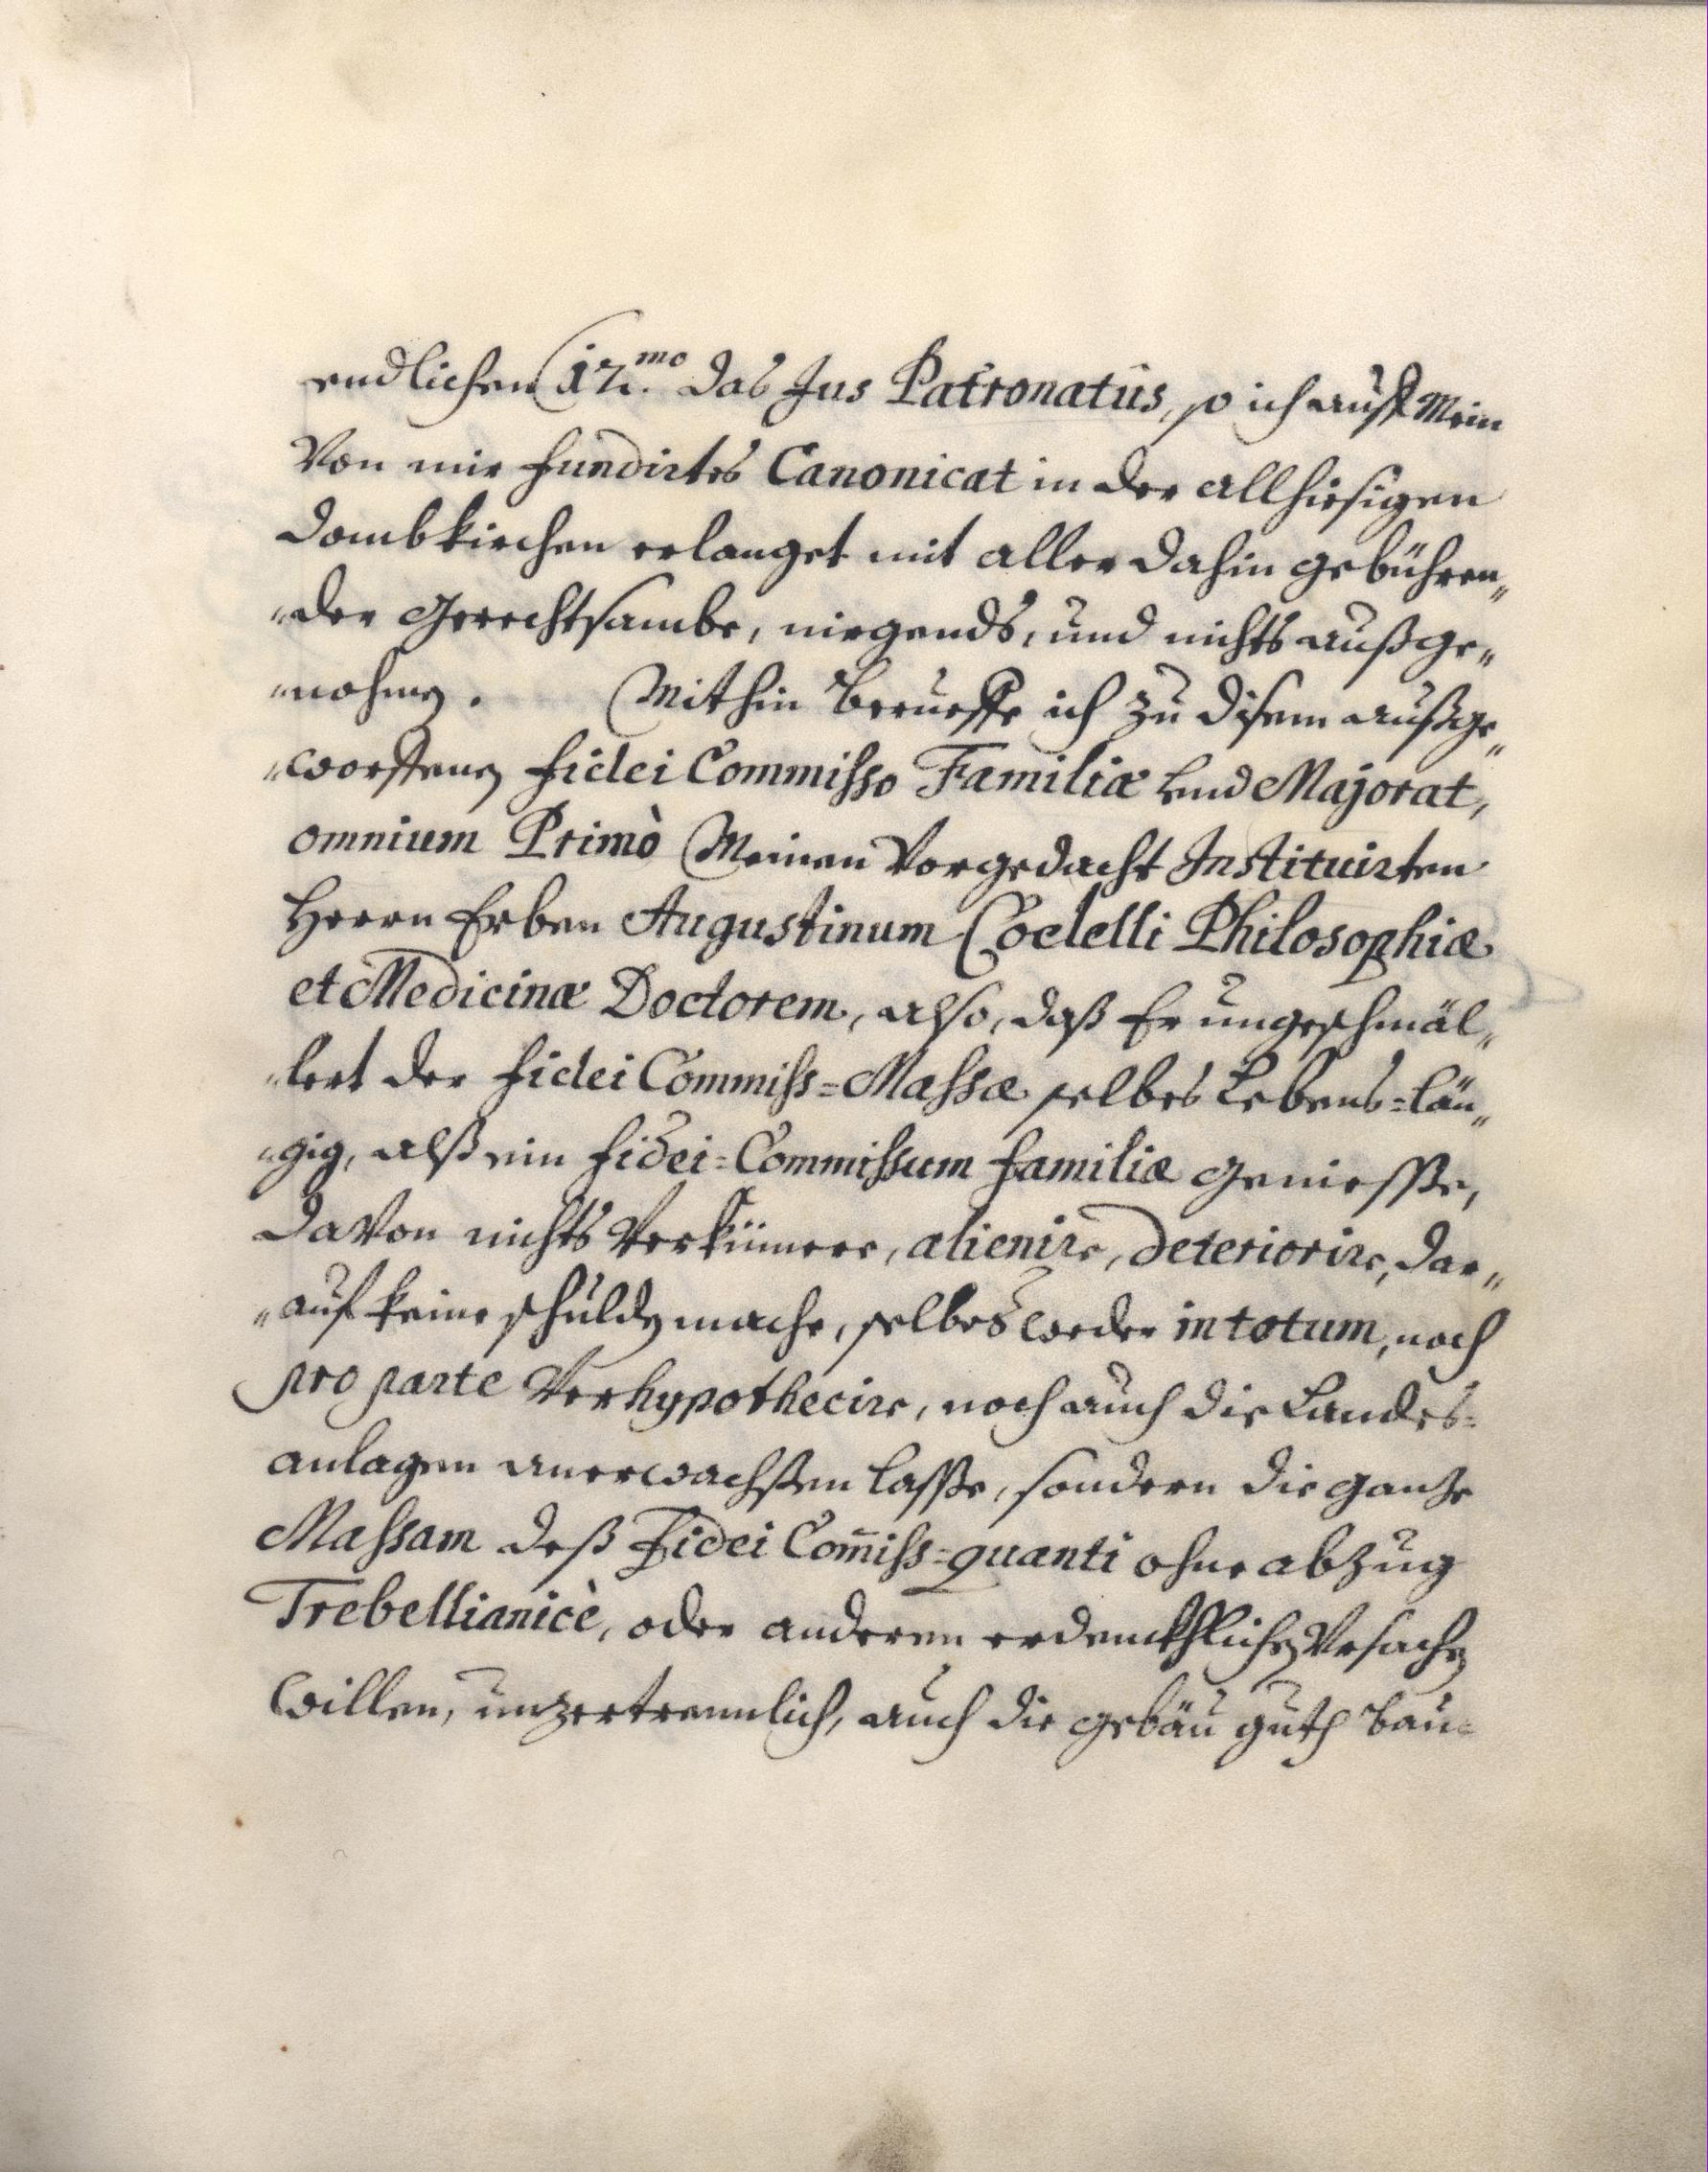 endlichen 12.mo das Jus Patronatûs, so ich auff Mein
Von mir fundirtes Canonicat in der allhiesigen
Dombkirchen erlanget mit aller dahin gebühren„
„der Gerechtsambe, niegends, und nichts außge„
„nohmen. Mithin berueffe ich zu disem außge„
„worffenen fidei Commisso Familiæ und Majorat,
omnium Primò Meinen Vorgedacht Instituirten
Herrn Erben Augustinum Codelli Philosophiæ
et Medicinæ Doctorem, also, daß Er ungeschmäl„
„lert der fidei Commiss=Massæ selbes Lebens=län„
„gig, alß ein fidei=Commissum familiæ geniesse,
davon nichts Verkümere, alienire, deteriorire, dar„
„auf keine schulden mache, selbes weder in totum, noch
pro parte Verhypothecire, noch auch die Landes=
anlagen anerwachssen lasse, sondern die gantze
Massam deß Fidei Com̄iss=quanti ohne abzug
Trebellianicè, oder anderen erdenckhlichen Ursachen
willen, unzertrennlich, auch die gebäu guth bau=